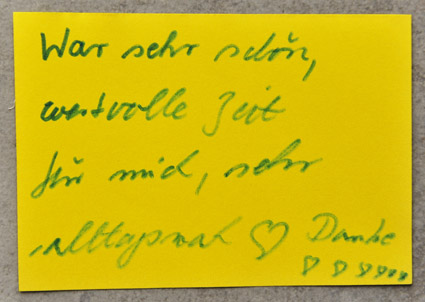 War sehr schön,
wertvolle Zeit
für mich, sehr
alltagsnah ♡ Danke
♡ ♡ ♡♡♡♡